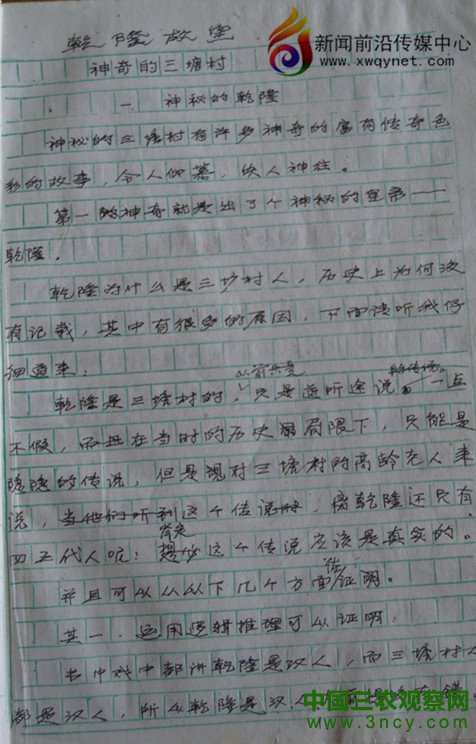 乾隆故里
新闻前沿传媒中心
www.xwqynet.com
神奇的三塘村
一 神秘的乾隆
神秘的三塘村有许多神奇的富有传奇色
彩的故事，令人仰慕，使人神往。
第一的神奇就是出了个神秘的皇帝——
乾隆。
乾隆为什么是三塘村人，历史上为何没
有记载，其中有很多的原因，下面请听我仔
细道来：
乾隆是三塘村的，只是道听途说 一点
不假，而且在当时的历史局限下，只能是
隐隐的传说，但是现对三塘村的高龄老人来
说，当他们听到这个传说时，离乾隆还只有
四五代人呢；这个传说应该是真实的。
并且可以从以下几个方面佐证明。
其一，运用逻辑推理可以证明：
书中戏中都讲乾隆是汉人，而三塘村人
都是汉人，所以乾隆是汉
中国三农观察网
www.3ncy.com